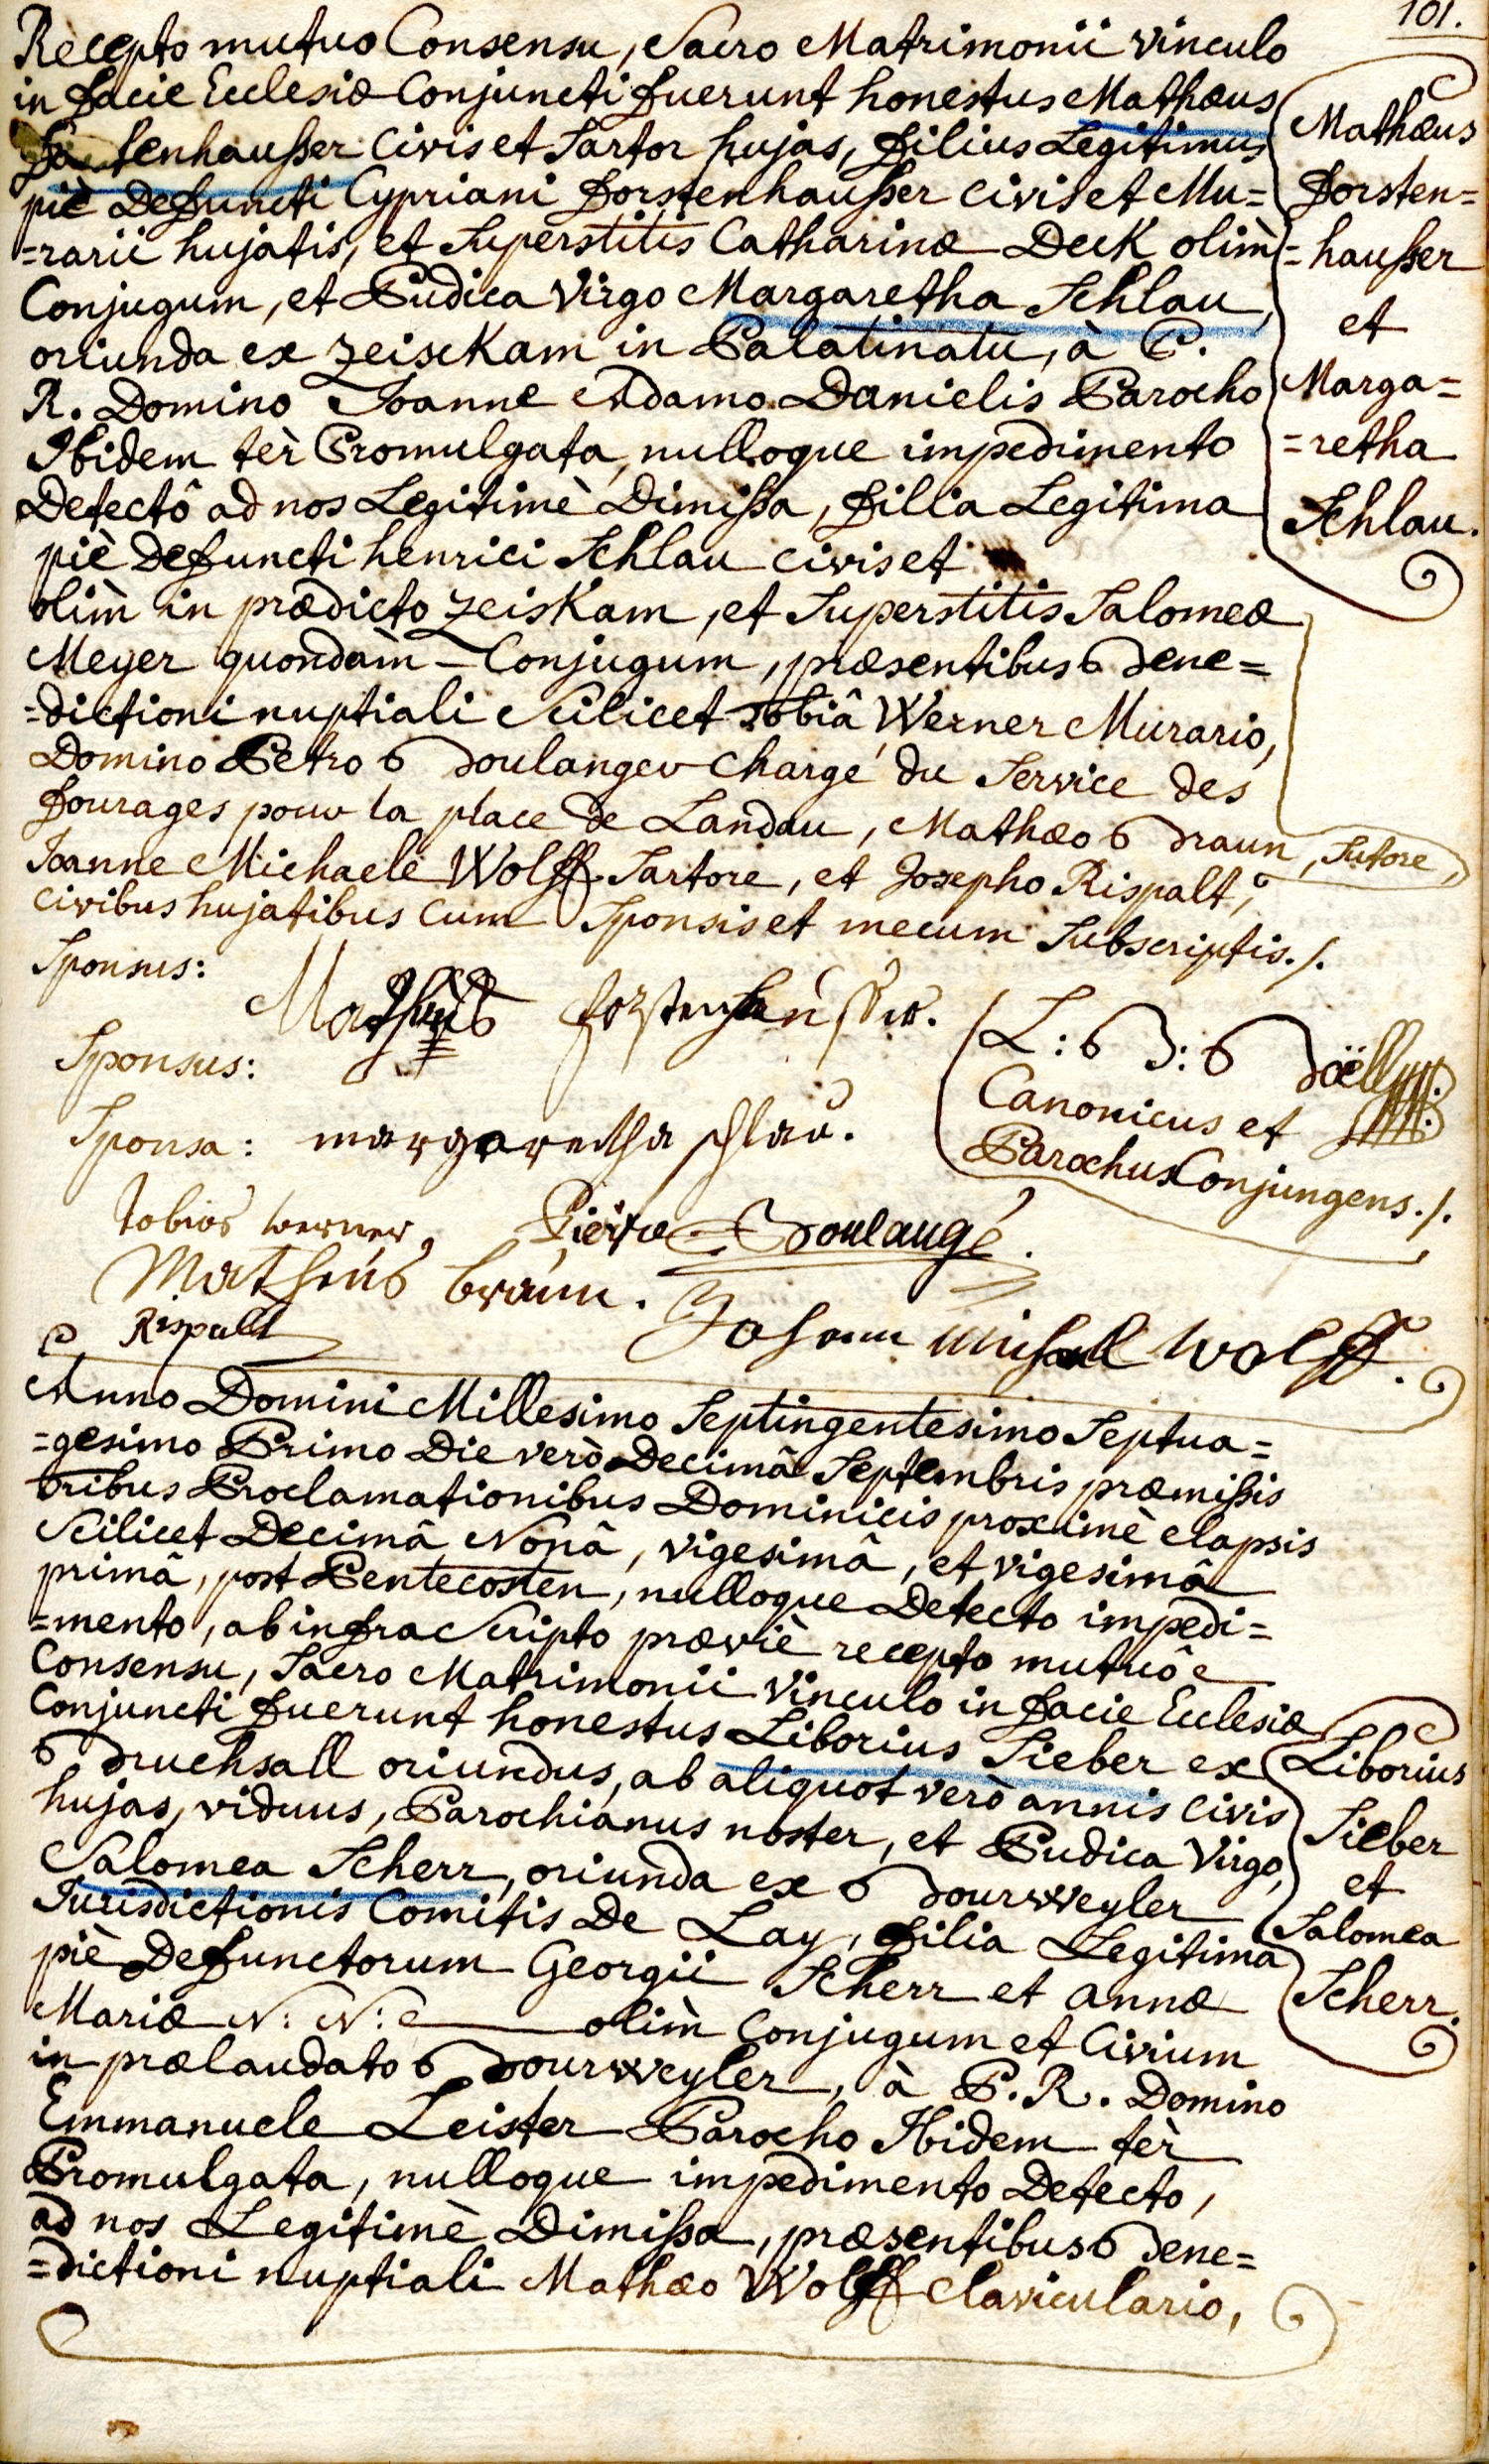 101.
Recepto mutuo Consensu, Sacro Matrimonii vinculo
in facie Ecclesiæ Conjuncti fuerunt honestus Mathæus
tenhausser Civis et Sartor hujas, filius Legitimus
piè Defuncti Cypriani forstenhausser civis et Mu=
=rarii hujatis, et Superstitis Catharinæ Deck olim
Conjugum, et Pudica Virgo Margaretha Schlau,
oriunda ex zeisckam in Palatinatu, à P.
R. Domino Joanne Adamo Danielis Parocho
Ibidem tèr Promulgata, nulloque impedimento
Detectô ad nos Legitimè Dimissa, filia Legitima
piè Defuncti henrici Schlau civis et
olim in prædicto zeiskam, et Superstitis Salomeæ
Meyer quondam Conjugum, præsentibus Bene=
=dictioni nuptiali Scilicet Tobiâ Werner Murario,
Domino Petro Boulanger Chargé du Service des
fourages pour la place de Landau, Mathæo Braun, Sutore,
Joanne Michaele Wolff Sartore, et Josepho Rispalt,
civibus hujatibus Cum Sponsis et mecum Subscriptis./.
Mathæus
forsten=
=hausser
et
Marga=
=retha
Schlau.
Sponsus:
Mathæus forstenhausser.
Sponsus:
Sponsa: margaretha schlau.
L: B: Boëll
Canonicus et
Parochus Conjungens./.
tobias werner, Pierre Boulangé.
Matheus braun.
Rispalt
Johann michael wolff.
Anno Domini Millesimo Septingentesimo Septua=
=gesimo Primo Die verò Decimâ Septembris præmissis
tribus Proclamationibus Dominicis proximè elapsis
Scilicet Decimâ Nonâ, vigesimâ, et vigesimâ
primâ, post Pentecosten, nulloque Detecto impedi=
=mento, ab infra Scripto præviè recepto mutuô
Consensu, Sacro Matrimonii Vinculo in facie Ecclesiæ
Conjuncti fuerunt honestus Liborius Sieber ex
Bruchsall oriundus, ab aliquot verò annis civis
hujas, viduus, Parochianus noster, et Pudica Virgo,
Salomea Scherr, oriunda ex Bourweyler
Jurisdictionis Comitis De Lay, filia Legitima
piè Defunctorum Georgii Scherr et annæ
Mariæ N: N: olim Conjugum et Civium
in prælaudato Bourweyler, à P. R. Domino
Emmanuele Leister Parocho Ibidem tèr
Promulgata, nulloque impedimento Detecto,
ad nos Legitimè Dimissa, præsentibus Bene=
=dictioni nuptiali Mathæo Wolff Claviculario,
Liborius
Sieber
et
Salomea
Scherr.